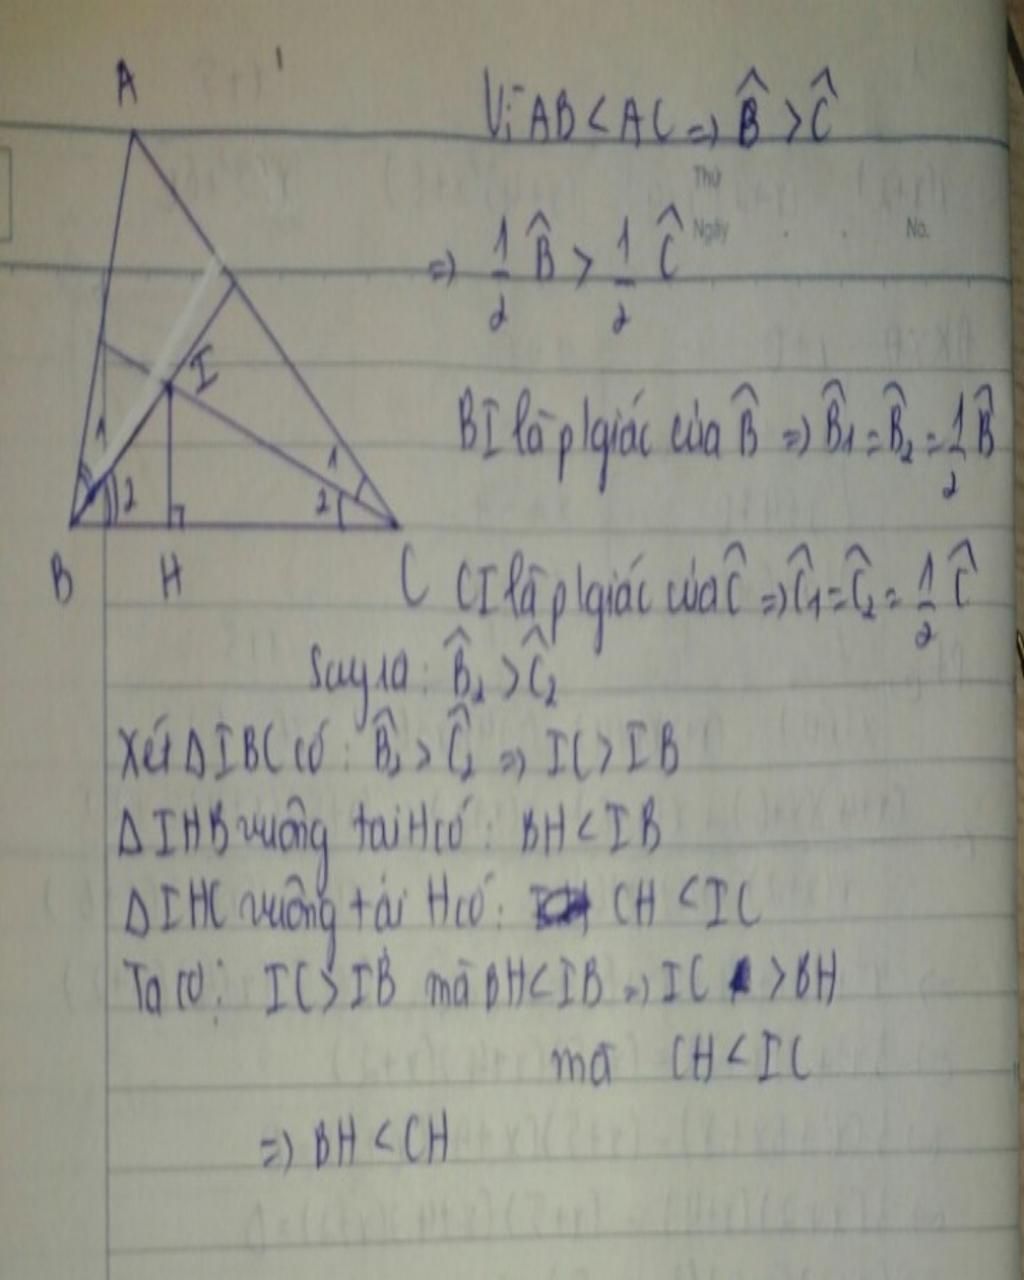 A
Vì AB < AC => B̂ > Ĉ
Thứ
Ngày
No.
=> 1/2 B̂ > 1/2 Ĉ
I
BI là p/giác của B̂ => B̂1 = B̂2 = 1/2 B̂
1
1
2
2
B H C
CI là p/giác của Ĉ => Ĉ1 = Ĉ2 = 1/2 Ĉ
Suy ra: B̂2 > Ĉ2
Xét ΔIBC có: B̂2 > Ĉ2 => IC > IB
ΔIHB vuông tại H có: BH < IB
ΔIHC vuông tại H có: CH < IC
Ta có: IC > IB mà BH < IB => IC > BH
mà CH < IC
=> BH < CH